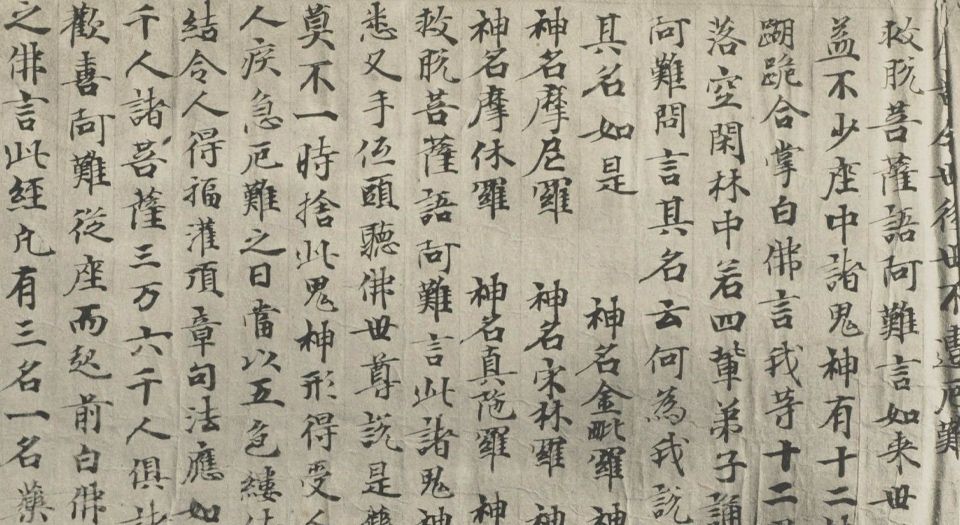 今世後世不遭厄難
救脱菩薩語阿難言如来世
益不少座中諸鬼神有十二
跪合掌白佛言我等十二
落空閑林中若四輩弟子誦
阿難問言其名云何為我說
其名如是　神名金毗羅　神
神名摩尼羅　神名宋林羅　神
神名摩休羅　神名真陁羅　神
救脱菩薩語阿難言此諸鬼神
悉叉手伍頭聽佛世尊說是
莫不一時捨此鬼神形得受人
人疾急厄難之日當以五色縷
結令人得福灌頂章句法應如
千人諸菩薩三万六千人俱諸
歡喜阿難從座而起前白佛
之佛言此經凡有三名一名藥